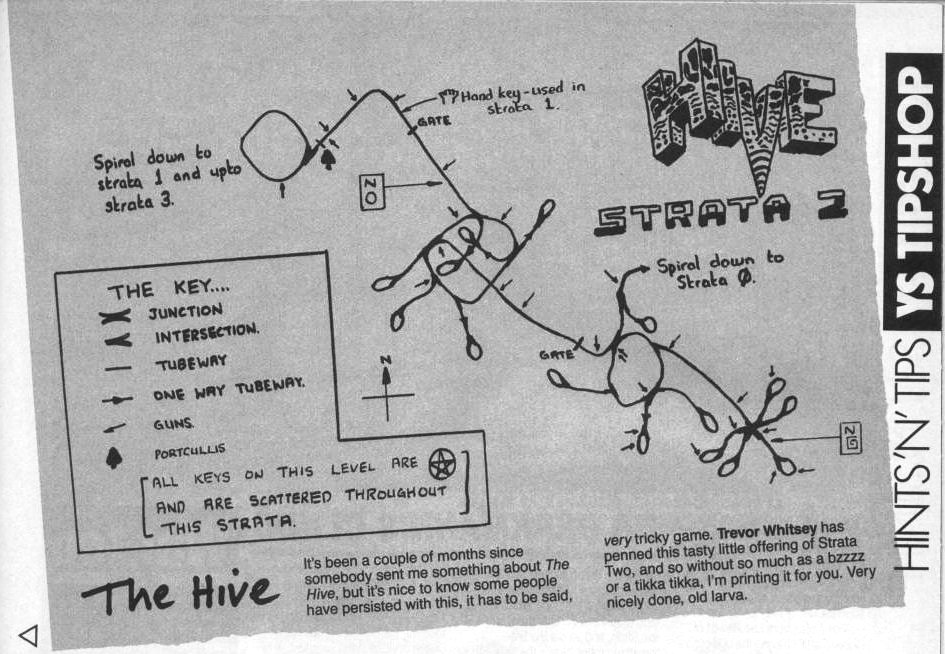 HIVE
STRATA 2
Hand key-used in
strata 1.
GATE
Spiral down to
strata 1 and upto
strata 3.
NO
Spiral down to
Strata 0.
GATE
N
THE KEY....
JUNCTION
INTERSECTION.
TUBEWAY
ONE WAY TUBEWAY.
GUNS.
PORTCULLIS
ALL KEYS ON THIS LEVEL ARE
AND ARE SCATTERED THROUGHOUT
THIS STRATA.
The Hive
It's been a couple of months since
somebody sent me something about The
Hive, but it's nice to know some people
have persisted with this, it has to be said,
very tricky game. Trevor Whitsey has
penned this tasty little offering of Strata
Two, and so without so much as a bzzzz
or a tikka tikka, I'm printing it for you. Very
nicely done, old larva.
HINTS 'N' TIPS YS TIPSHOP